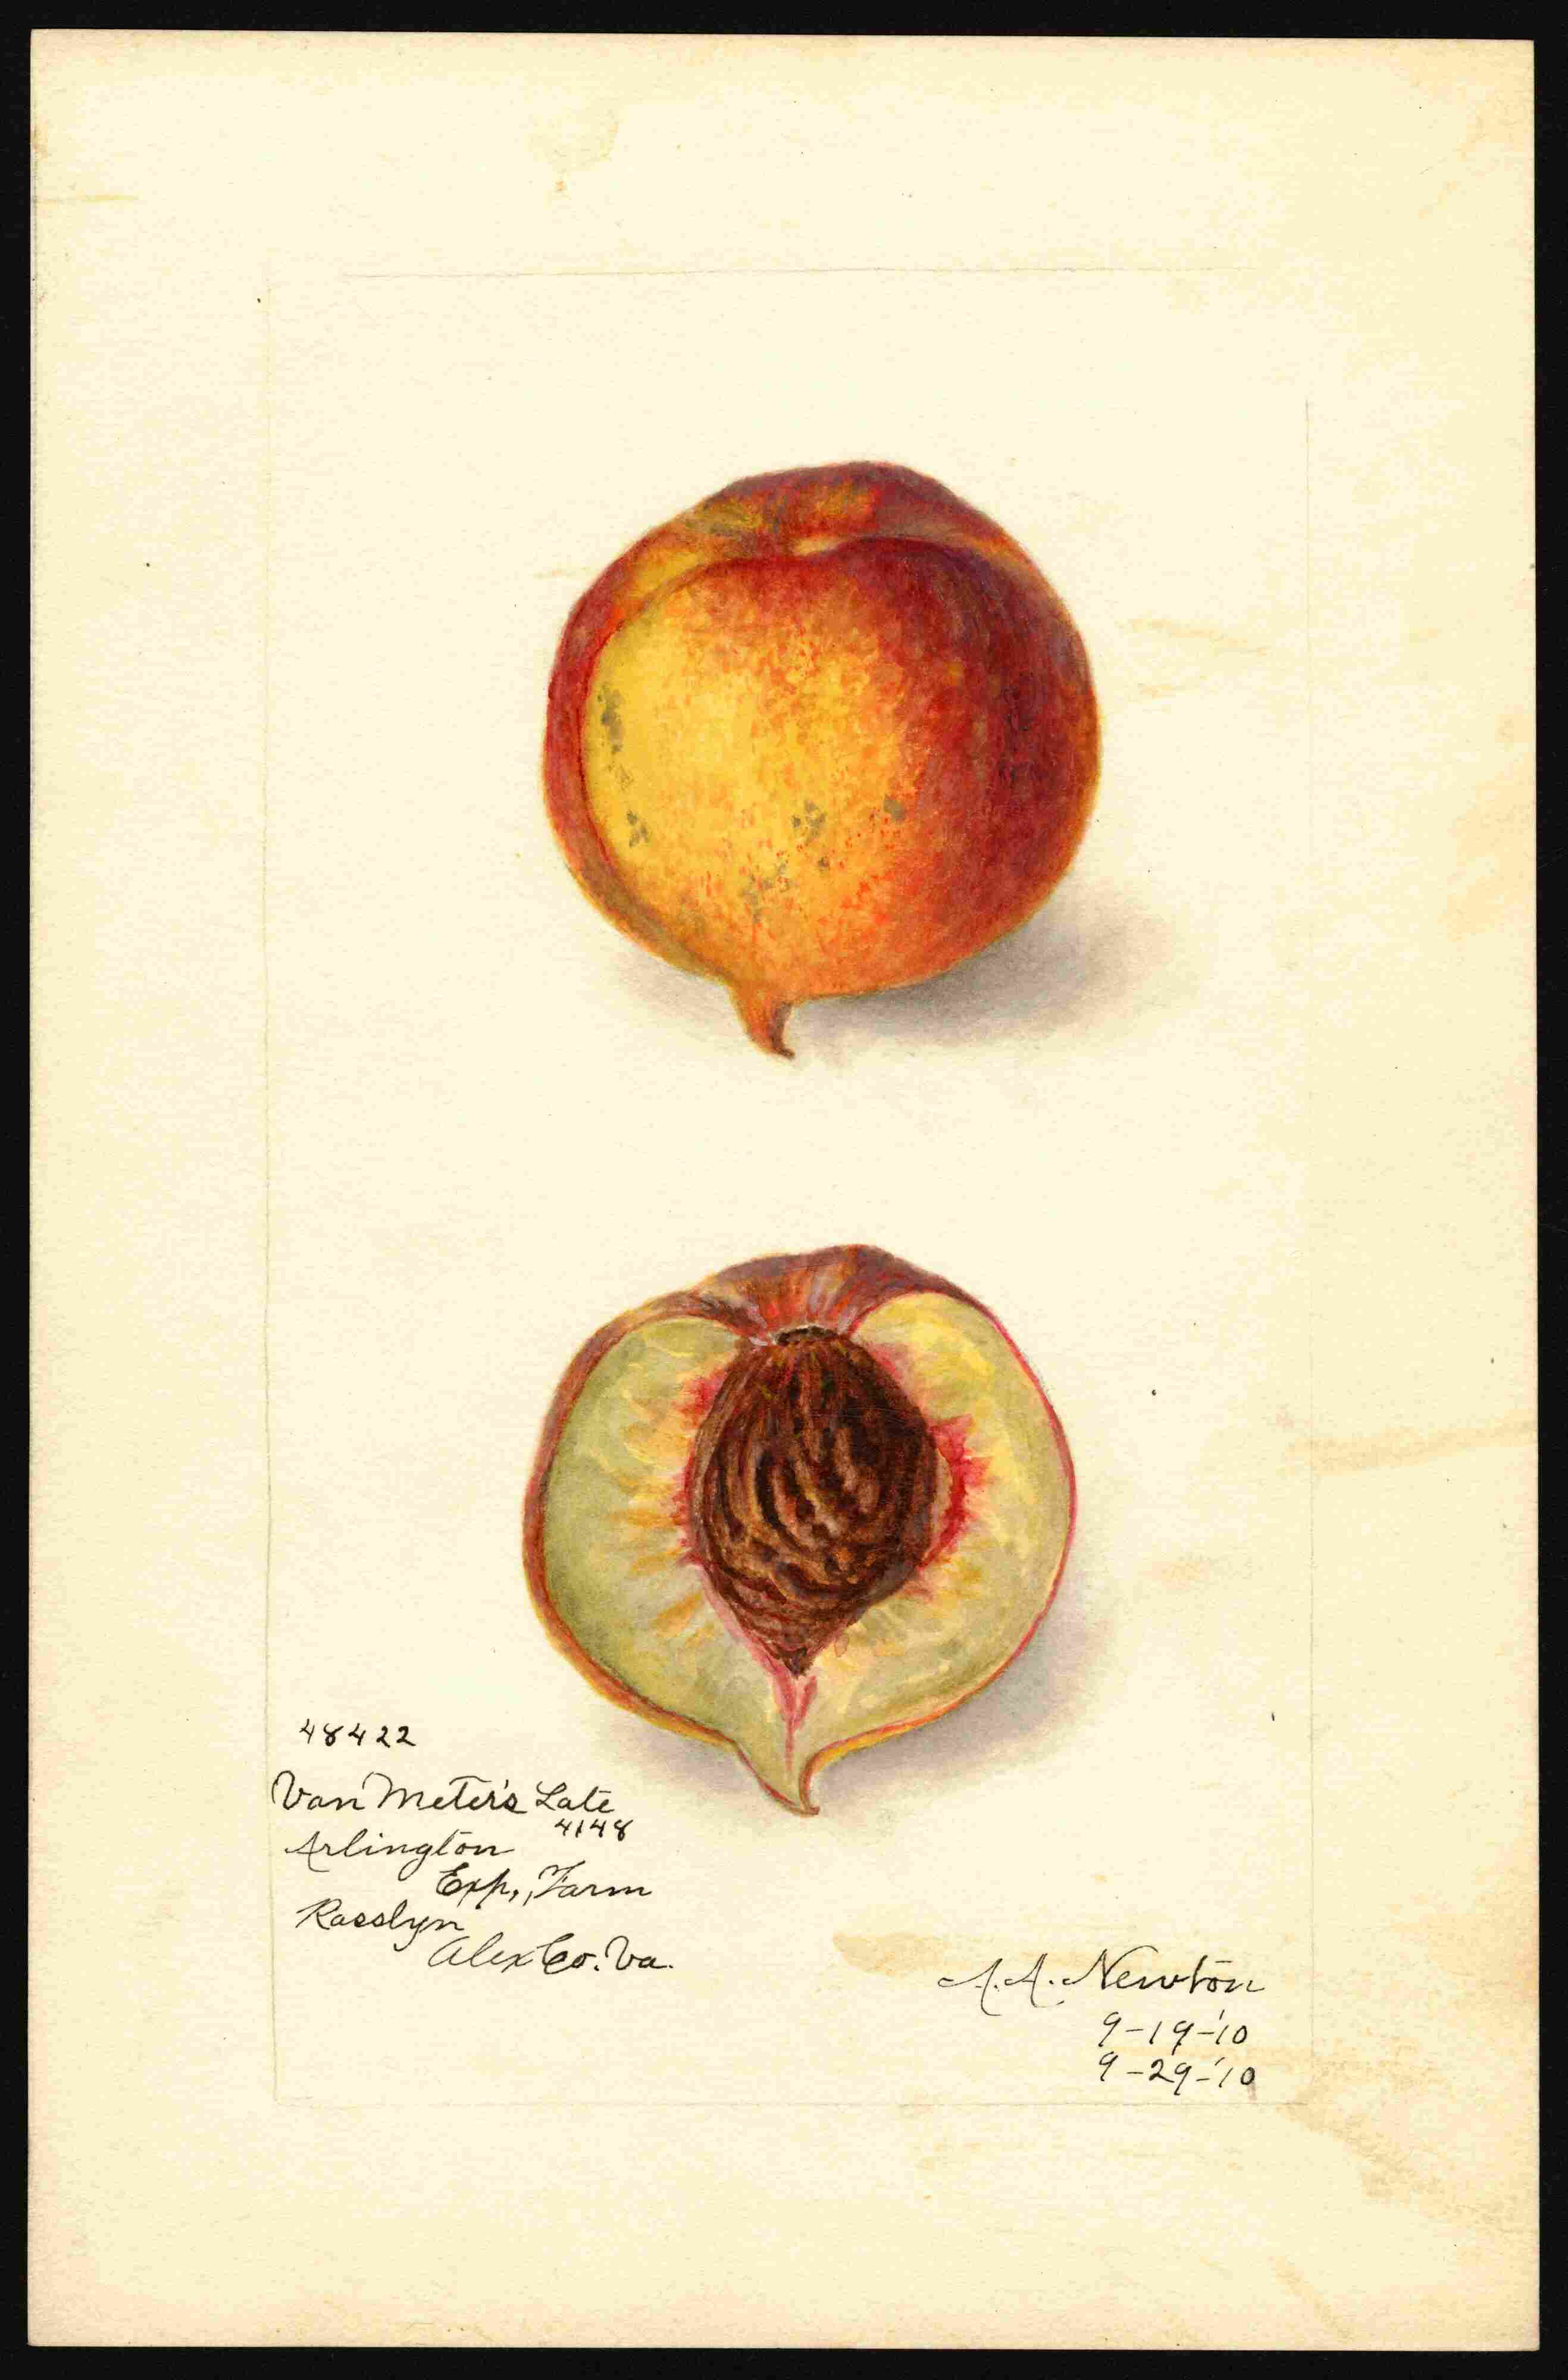 48422
Van Meter's Late
4148
Arlington
Exp. Farm
Rosslyn
Alex Co. Va.
A. A. Newton
9-19-'10
9-29-'10